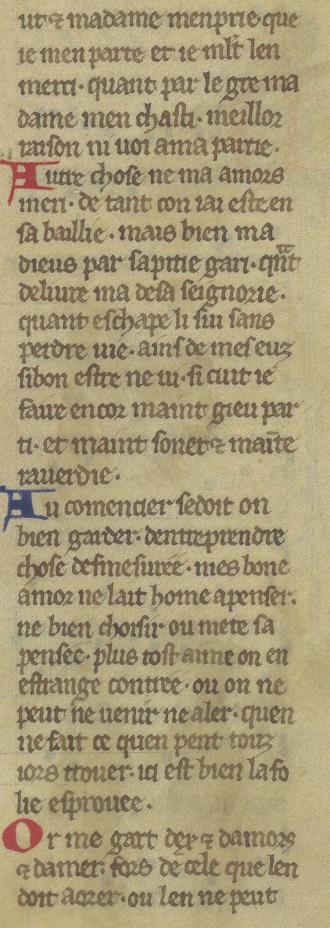 ut ⁊ madame menprie que
ie men parte et ie ml̄t len
merci · quant par le gre ma
dame men chasti · meillor
raison ni voi ama partie ·
Autre chose ne ma amors
meri · de tant con iai este en
sa baillie · mais bien ma
dieus par sa pitie gari · qn̄t
deliure ma desa seignorie ·
quant eschape li sui sans
perdre vie · ains de mes euz
si bon estre ne vi · si cuit ie
faire encor maint gieu par
ti · et maint sonet ⁊ mainte
rauerdie ·
Au comencier se doit on
bien garder · dentreprendre
chose desmesuree · mes bone
amor ne lait home apenser ·
ne bien choisir ou mete sa
pensee · plus tost aime on en
estrange contree · ou on ne
peut ne uenir ne aler · quen
ne fait ce quen peut touz
iors trouer · ici est bien la fo
lie esprouee ·
Or me gart dex ⁊ damors
⁊ damer · fors de cele que len
doit aorer · ou len ne peut